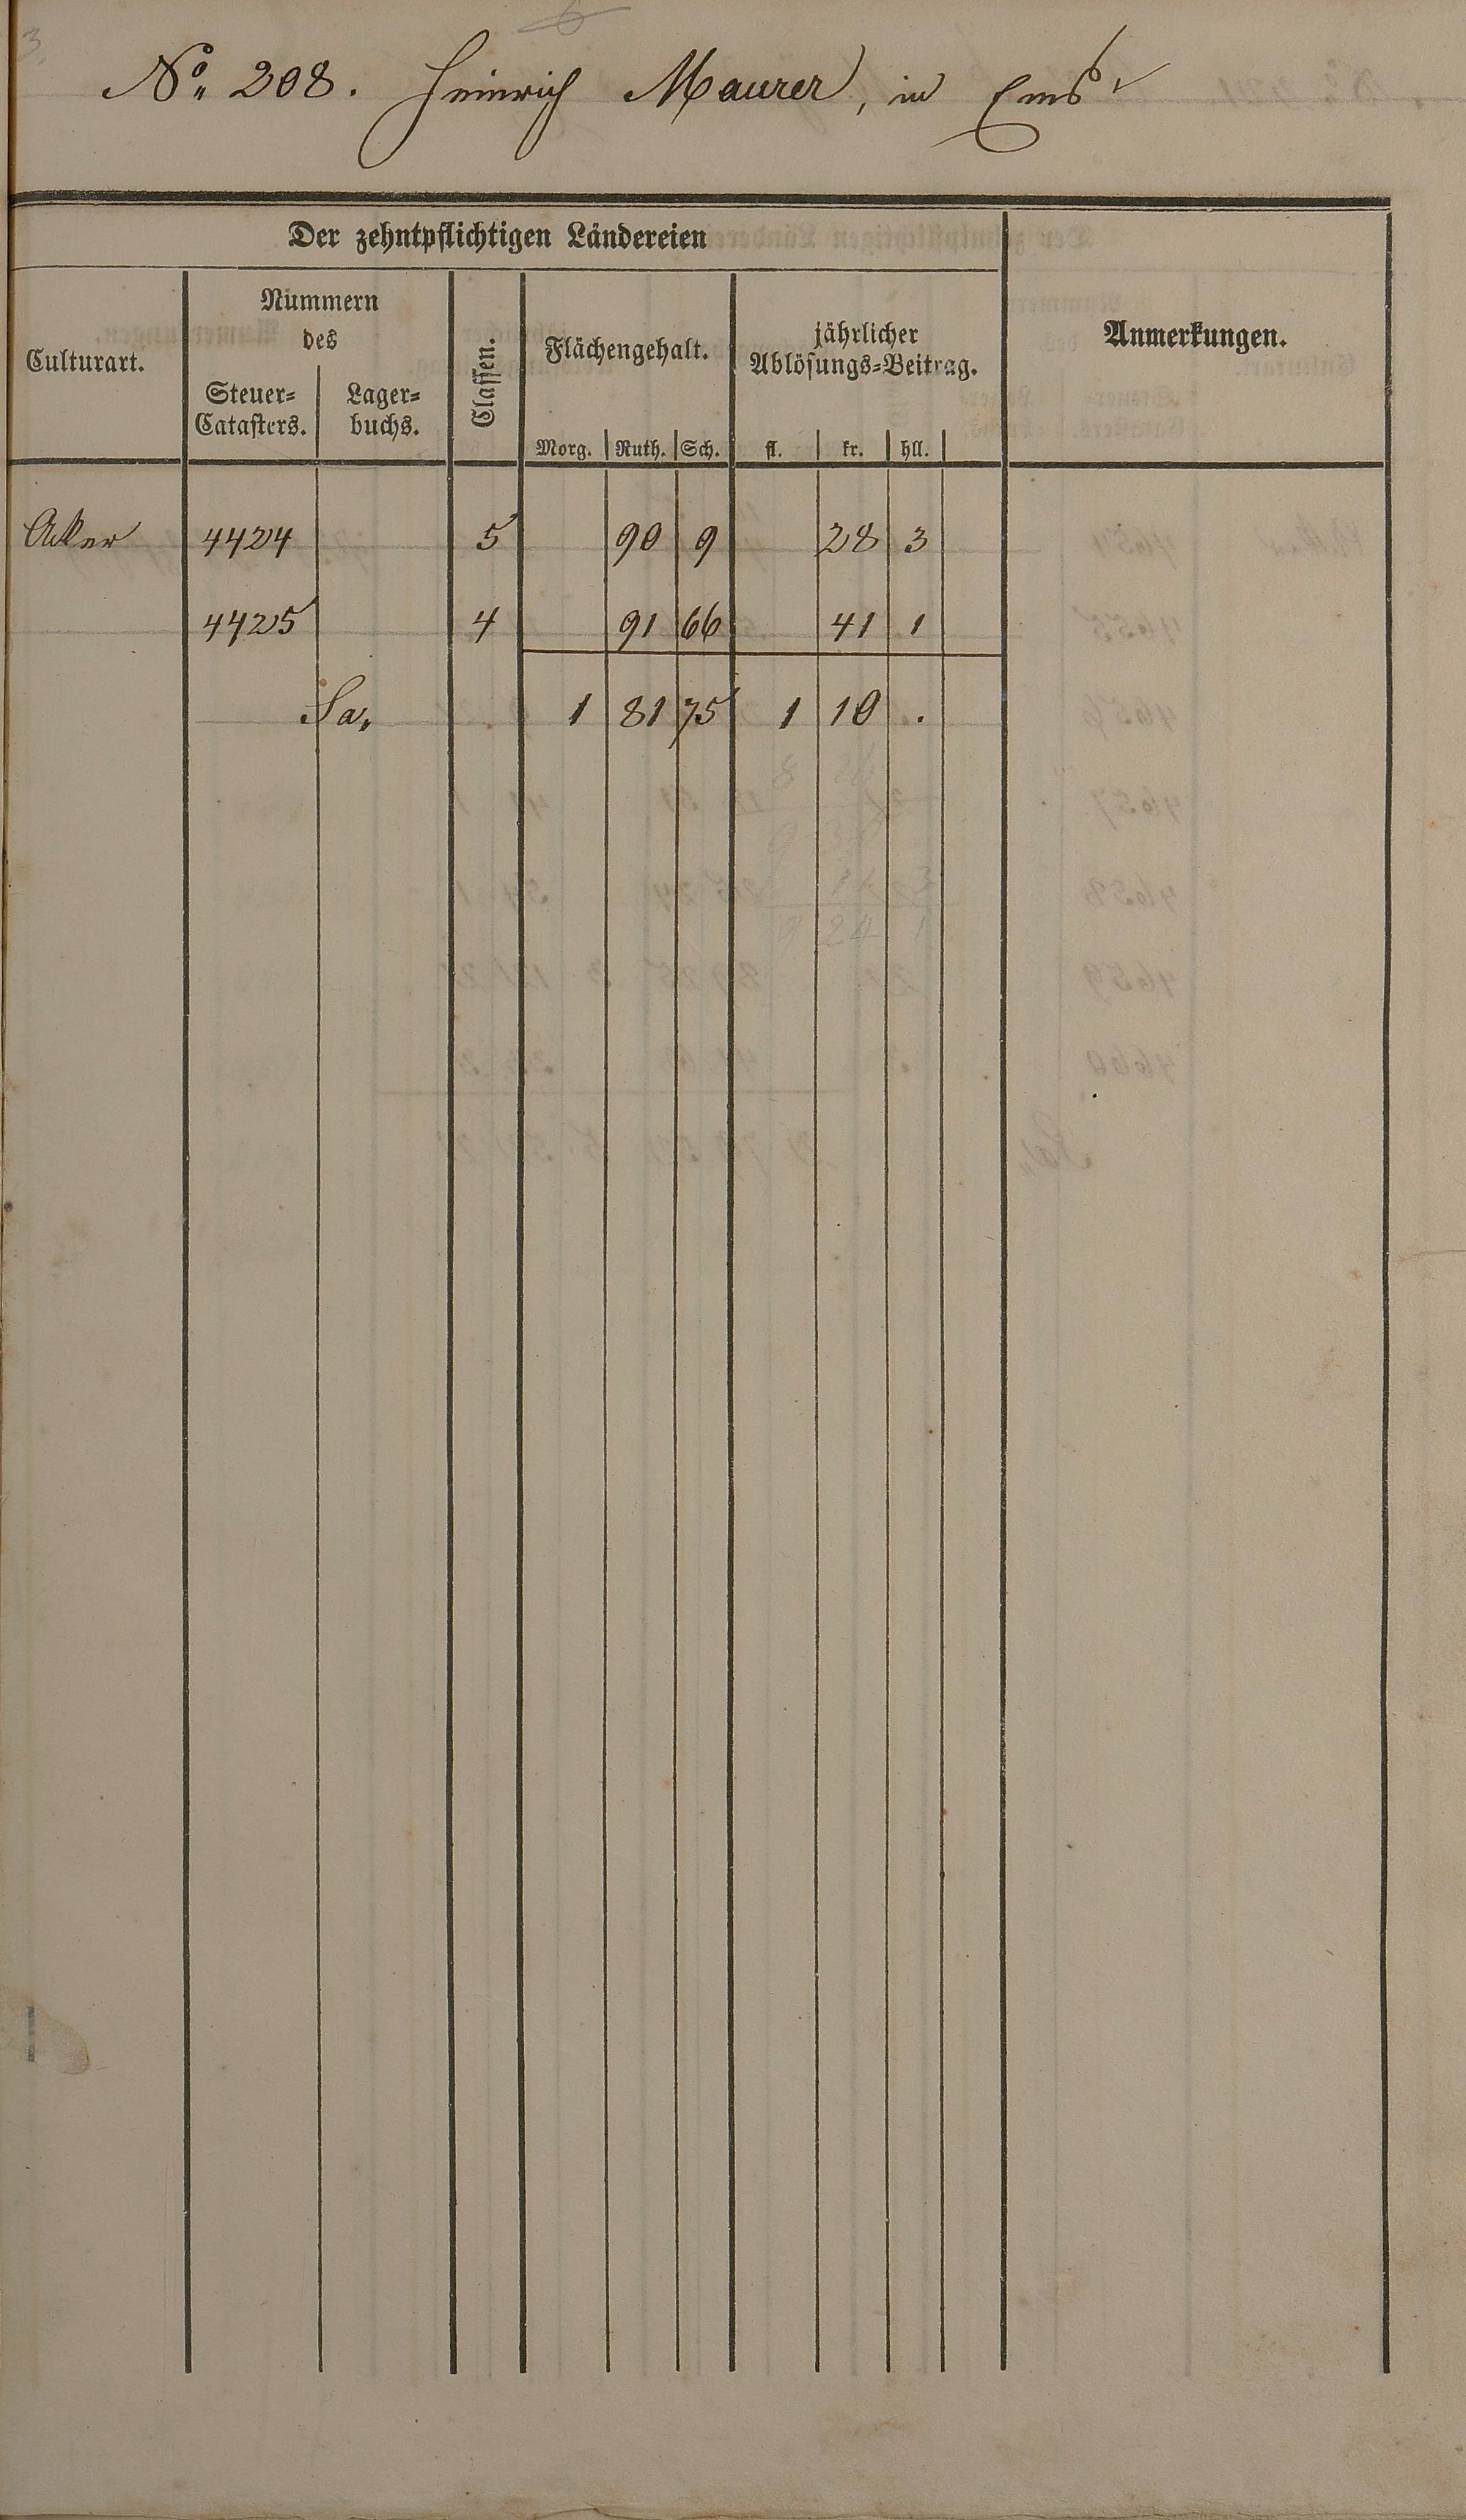 No. 208. Heinrich Maurer, in Ems
Der zehntpflichtigen Ländereien
Culturart.
Nummern
des
Steuer-
Catasters.
Lager-
buchs.
Classen.
Flächengehalt.
Morg. Ruth. Sch.
jährlicher
Ablösungs-Beitrag.
fl. kr. hll.
Anmerkungen.
Acker 4424 5 90 9 28 3
4425 4 91 66 41 1
Sa. 1 81 75 1 10 .